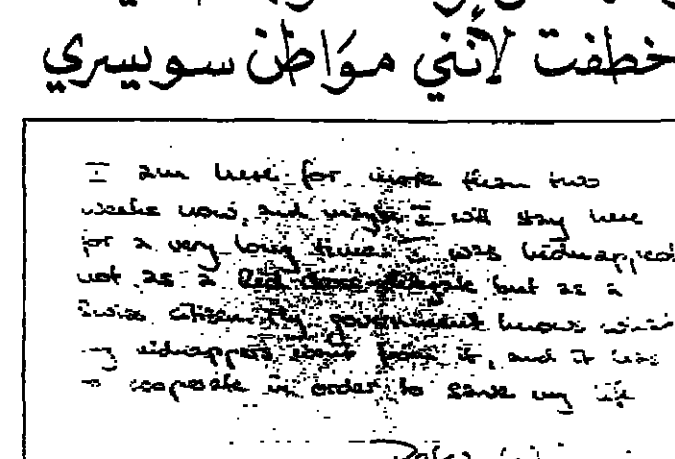 خطفت لأنّني موَاطن سويسري
I am here for more than two
weeks now, and maybe I will stay here
for a very long time. I was kidnapped
not as a Red Cross delegate but as a
Swiss citizen. My government knows what
my kidnappers want from it, and it has
to cooperate in order to save my life